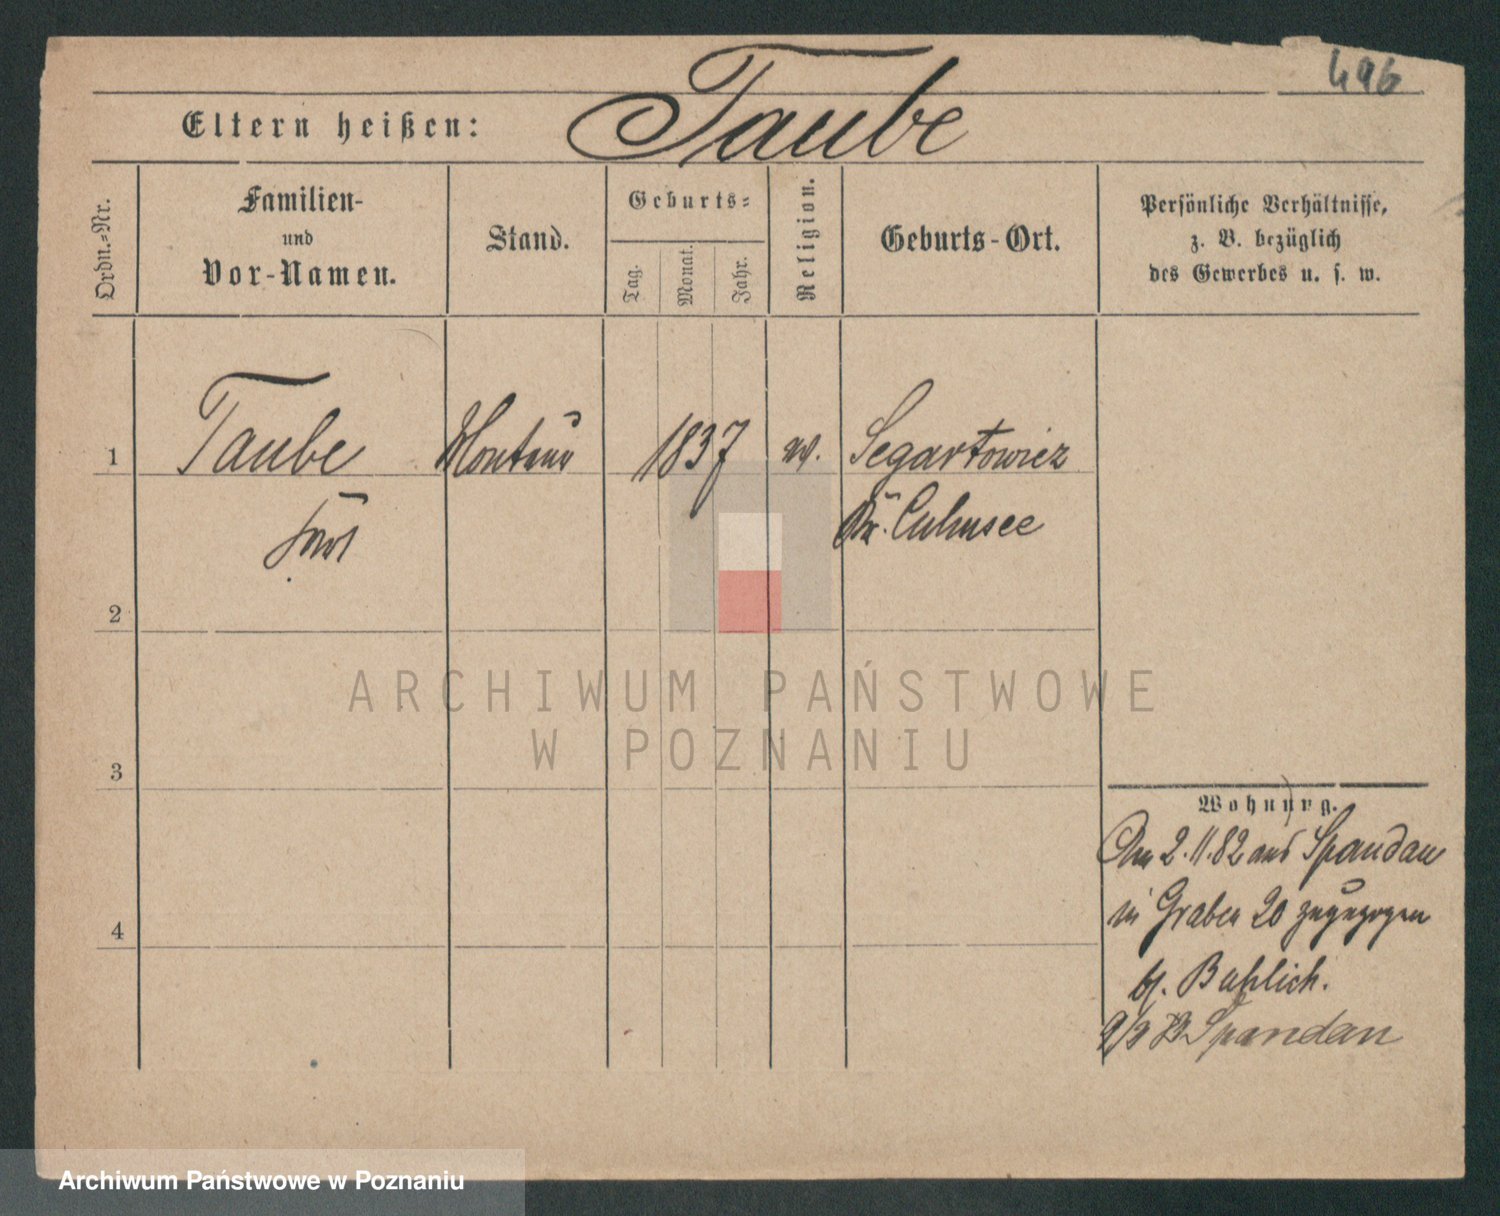 496
Eltern heißen: Taube
Ordn.-Nr.
Familien-
und
Vor-Namen.
Stand.
Geburts-
Tag.
Monat.
Jahr.
Religion.
Geburts-Ort.
Persönliche Verhältnisse,
z. B. bezüglich
des Gewerbes u. s. w.
1 Taube Monteur 1837 ev. Segartowicz
Kr. Culmsee
2
3
4
Wohnung.
Am 2.11.82 aus Spandau
in Graben 20 zugezogen
bei Bahlich.
Spandau
ARCHIWUM PAŃSTWOWE
W POZNANIU
Archiwum Państwowe w Poznaniu